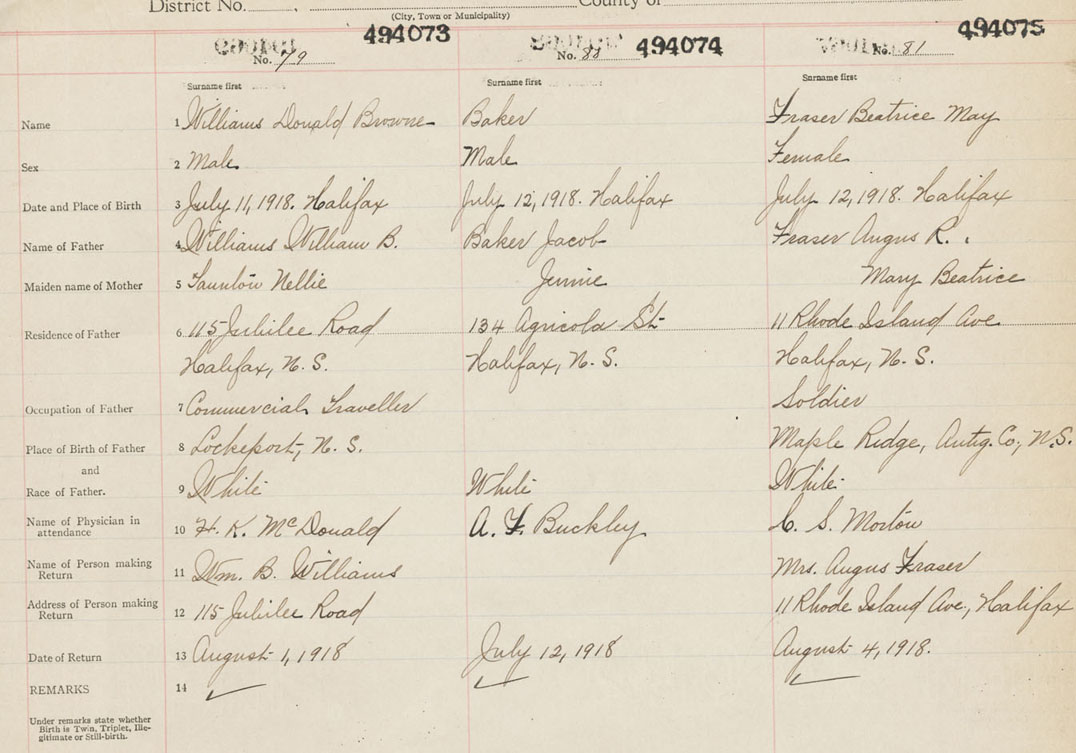 District No. County of
(City, Town or Municipality)
494073 494074 494075
No. 79 No. No. 81
Surname first Surname first Surname first
Name 1 Williams Donald Browne Baker Fraser Beatrice May
Sex 2 Male Male Female
Date and Place of Birth 3 July 11, 1918. Halifax July 12, 1918. Halifax July 12, 1918. Halifax
Name of Father 4 Williams William B. Baker Jacob Fraser Angus R.
Maiden name of Mother 5 Nellie Jennie Mary Beatrice
Residence of Father 6 115 Jubilee Road 134 Agricola St 11 Rhode Island Ave
Halifax, N. S. Halifax, N. S. Halifax, N. S.
Occupation of Father 7 Commercial Traveller Soldier
Place of Birth of Father 8 Lockeport, N. S. Maple Ridge, Antig. Co., N.S.
and
Race of Father. 9 White White White
Name of Physician in
attendance 10 H. K. McDonald A. F. Buckley C. S. Morton
Name of Person making
Return 11 Wm. B. Williams Mrs. Angus Fraser
Address of Person making
Return 12 115 Jubilee Road 11 Rhode Island Ave., Halifax
Date of Return 13 August 1, 1918 July 12, 1918 August 4, 1918.
REMARKS 14
Under remarks state whether
Birth is Twin, Triplet, Ille-
gitimate or Still-birth.